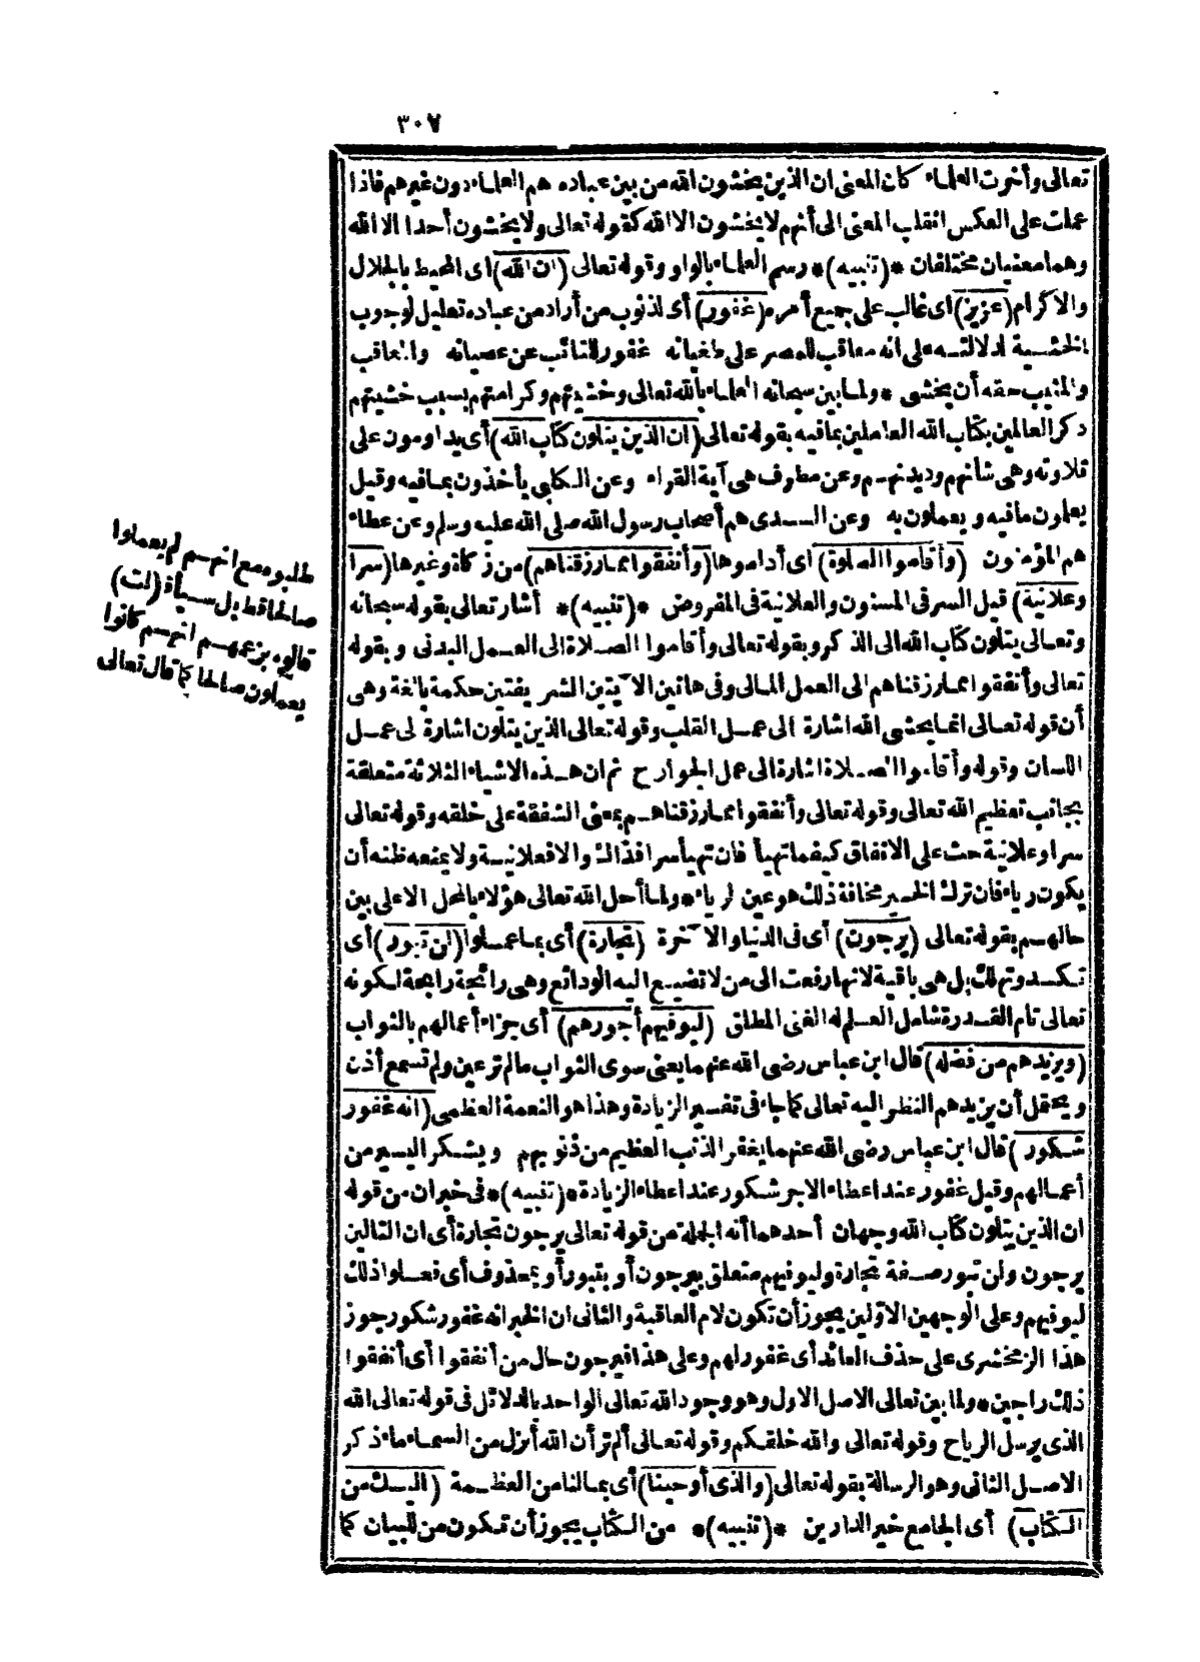 ٣٠٧
تعالى وأخرت العلماء كان المعنى ان الذين يخشون الله من بين عباده هم العلماء دون غيرهم فاذا
عملت على العكس انقلب المعنى الى أنهم لا يخشون الا الله كقوله تعالى ولا يخشون أحدا الا الله
وهما معنيان مختلفان *(تنبيه)* رسم العلماء بالواو وقوله تعالى (ان الله) اى المحيط بالجلال
والاكرام (عزيز) اى غالب على جميع أمره (غفور) أى لذنوب من أراد من عباده تعليل لوجوب
الخشية لدلالته على انه معاقب للمصر على طغيانه غفور للتائب عن عصيانه والمعاقب
والمثيب حقه أن يخشى * ولما بين سبحانه العلماء بالله تعالى وخشيتهم وكرامتهم بسبب خشيتهم
ذكر العالمين بكتاب الله العاملين بما فيه بقوله تعالى (ان الذين يتلون كتاب الله) أى يداومون على
تلاوته وهى شأنهم وديدنهم وعن مطرف هى آية القراء وعن الكلبى يأخذون بما فيه وقيل
يعلمون ما فيه ويعملون به وعن السدى هم أصحاب رسول الله صلى الله عليه وسلم وعن عطاء
هم المؤمنون (وأقاموا الصلوة) اى أداموها (وأنفقوا مما رزقناهم) من زكاة وغيرها (سرا
وعلانية) قيل السر فى المسنون والعلانية فى المفروض *(تنبيه)* أشار تعالى بقوله سبحانه
وتعالى يتلون كتاب الله الى الذكر وبقوله تعالى وأقاموا الصلاة الى العمل البدنى وبقوله
تعالى وأنفقوا مما رزقناهم الى العمل المالى وفى هاتين الآيتين الشريفتين حكمة بالغة وهى
أن قوله تعالى انما يخشى الله اشارة الى عمل القلب وقوله تعالى الذين يتلون اشارة لى عمل
اللسان وقوله وأقاموا الصلاة اشارة الى عمل الجوارح ثم ان هذه الاشياء الثلاثة متعلقة
بجانب تعظيم الله تعالى وقوله تعالى وأنفقوا مما رزقناهم بمعنى الشفقة على خلقه وقوله تعالى
سرا وعلانية حث على الانفاق كيفما تهيأ فان تهيأ سرا فذاك والا فعلانية ولا يمنعه ظنه أن
يكون رياء فان ترك الخير مخافة ذلك هو عين لرياء * ولما أحل الله تعالى هؤلاء بالمحل الاعلى بين
حالهم بقوله تعالى (يرجون) أى فى الدنيا والآخرة (تجارة) أى بما عملوا (لن تبور) أى
تكسد وتهلك بل هى باقية لانها رفعت الى من لا تضيع اليه الودائع وهى رائجة رابحة لكونه
تعالى تام القدرة شامل العلم له الغنى المطلق (ليوفيهم أجورهم) أى جزاء أعمالهم بالثواب
(ويزيدهم من فضله) قال ابن عباس رضى الله عنهما يعنى سوى الثواب ما لم تر عين ولم تسمع أذن
ويحتمل أن يزيدهم النظر اليه تعالى كما جاء فى تفسير الزيادة وهذا هو النعمة العظمى (انه غفور
شكور) قال ابن عباس رضى الله عنهما يغفر الذنب العظيم من ذنوبهم ويشكر اليسير من
أعمالهم وقيل غفور عند اعطاء الاجر شكور عند اعطاء الزيادة *(تنبيه)* فى خبر ان من قوله
ان الذين يتلون كتاب الله وجهان أحدهما أنه الجملة من قوله تعالى يرجون تجارة أى ان التالين
يرجون ولن تبور صفة تجارة وليوفيهم متعلق بيرجون أو بتبور أو بمحذوف أى فعلوا ذلك
ليوفيهم وعلى الوجهين الاوّلين يجوز أن تكون لام العاقبة والثانى ان الخبر انه غفور شكور جوز
هذا الزمخشرى على حذف العائد أى غفور لهم وعلى هذا فيرجون حال من أنفقوا أى أنفقوا
ذلك راجين * ولما بين تعالى الاصل الاول وهو وجود الله تعالى الواحد بالدلائل فى قوله تعالى الله
الذى يرسل الرياح وقوله تعالى والله خلقكم وقوله تعالى ألم تر أن الله أنزل من السماء ماء ذكر
الاصل الثانى وهو الرسالة بقوله تعالى (والذى أوحينا) أى بما لنا من العظمة (اليك من
الكتاب) أى الجامع خير الدارين *(تنبيه)* من الكتاب يجوز أن تكون من للبيان كما
طلبوه مع انهم لم يعملوا
صالحا قط بل سيأة (لت)
قالوه بزعمهم انهم كانوا
يعملون صالحا كما قال تعالى